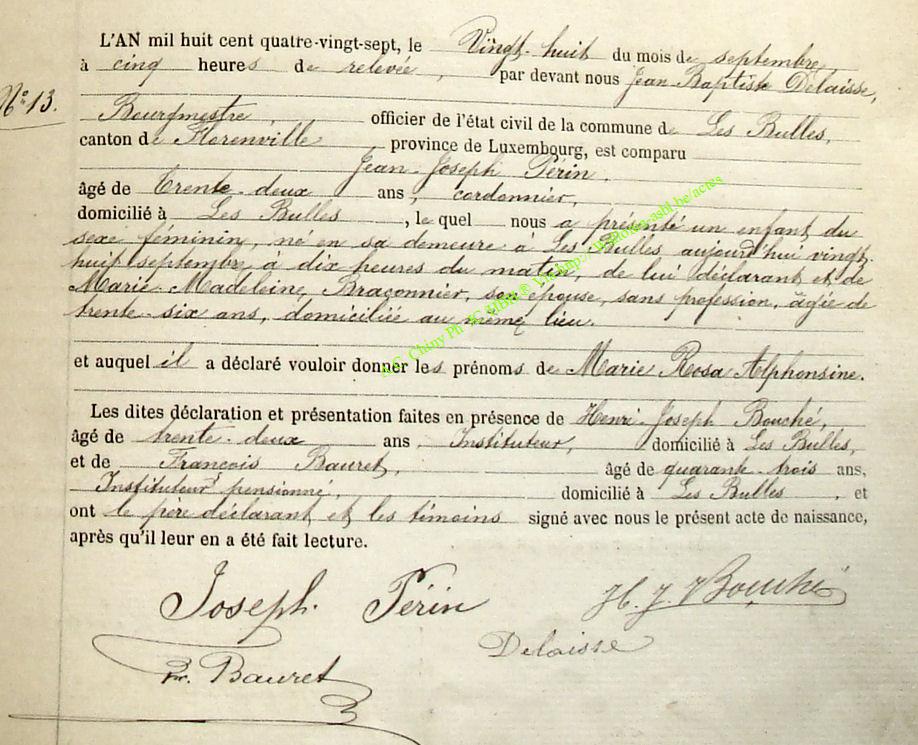 L'AN mil huit cent quatre-vingt-sept, le Vingt-huit du mois de septembre,
à cinq heures de relevée, par devant nous Jean-Baptiste Delaisse,
N° 13.
Bourgmestre, officier de l'état civil de la commune de Les Bulles,
canton de Florenville province de Luxembourg, est comparu
Jean-Joseph Périn,
âgé de trente-deux ans, cordonnier,
domicilié à Les Bulles, le quel nous a présenté un enfant du
sexe féminin, né en sa demeure à Les Bulles aujourd'hui vingt-
huit septembre à dix heures du matin, de lui déclarant et de
Marie-Madeleine Braconnier, son épouse, sans profession, âgée de
trente-six ans, domiciliée au même lieu.
et auquel il a déclaré vouloir donner les prénoms de Marie Rosa Alphonsine.
Les dites déclaration et présentation faites en présence de Henri-Joseph Bouché,
âgé de trente-deux ans, Instituteur, domicilié à Les Bulles,
et de François Bauret, âgé de quarante-trois ans,
Instituteur pensionné, domicilié à Les Bulles, et
ont le père déclarant et les témoins signé avec nous le présent acte de naissance,
après qu'il leur en a été fait lecture.
Joseph Périn
H. J. Bouché
Delaisse
Fr. Bauret